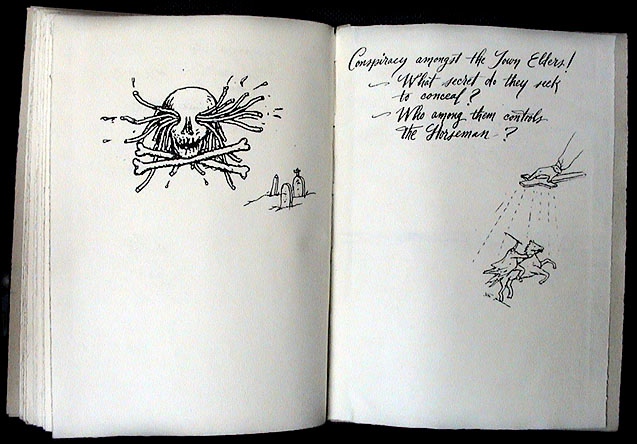 Conspiracy amongst the Town Elders!
– What secret do they seek
to conceal?
– Who among them controls
the Horseman?